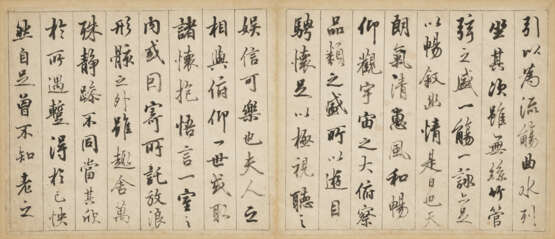 引以為流觴曲水列
坐其次雖無絲竹管
弦之盛一觴一詠亦足
以暢敘幽情是日也天
朗氣清惠風和暢
仰觀宇宙之大俯察
品類之盛所以遊目
騁懷足以極視聽之
娛信可樂也夫人之
相與俯仰一世或取
諸懷抱悟言一室之
內或因寄所託放浪
形骸之外雖趣舍萬
殊靜躁不同當其欣
於所遇蹔得於己快
然自足曾不知老之